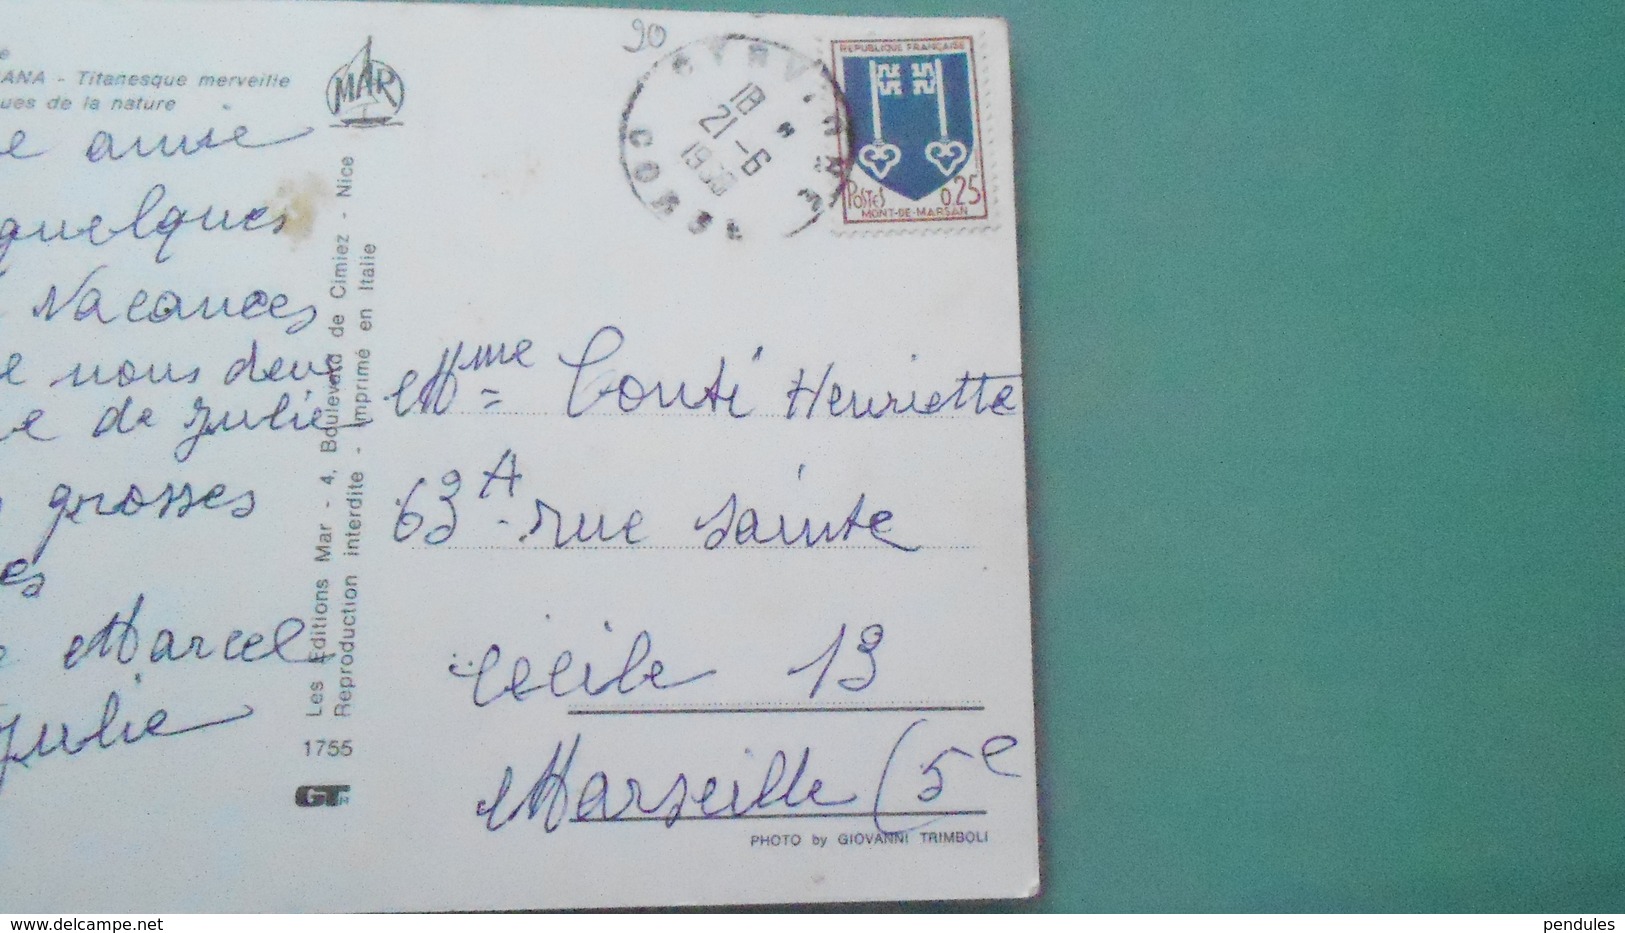 e
ANA - Titanesque merveille
ues de la nature
e amie
quelques
Vacances
e nous deux
e de Julie
grosses
es
Marcel
Julie
MAR
Les Editions Mar - 4, Boulevard de Cimiez - Nice
Reproduction interdite - Imprimé en Italie
1755
GT
20
18 H
21-6
CORSE
REPUBLIQUE FRANÇAISE
POSTES 0,25
MONT-DE-MARSAN
Mme Conti Henriette
63 A - rue Sainte
Cécile 13
Marseille (5e
PHOTO by GIOVANNI TRIMBOLI
www.delcampe.net
pendules